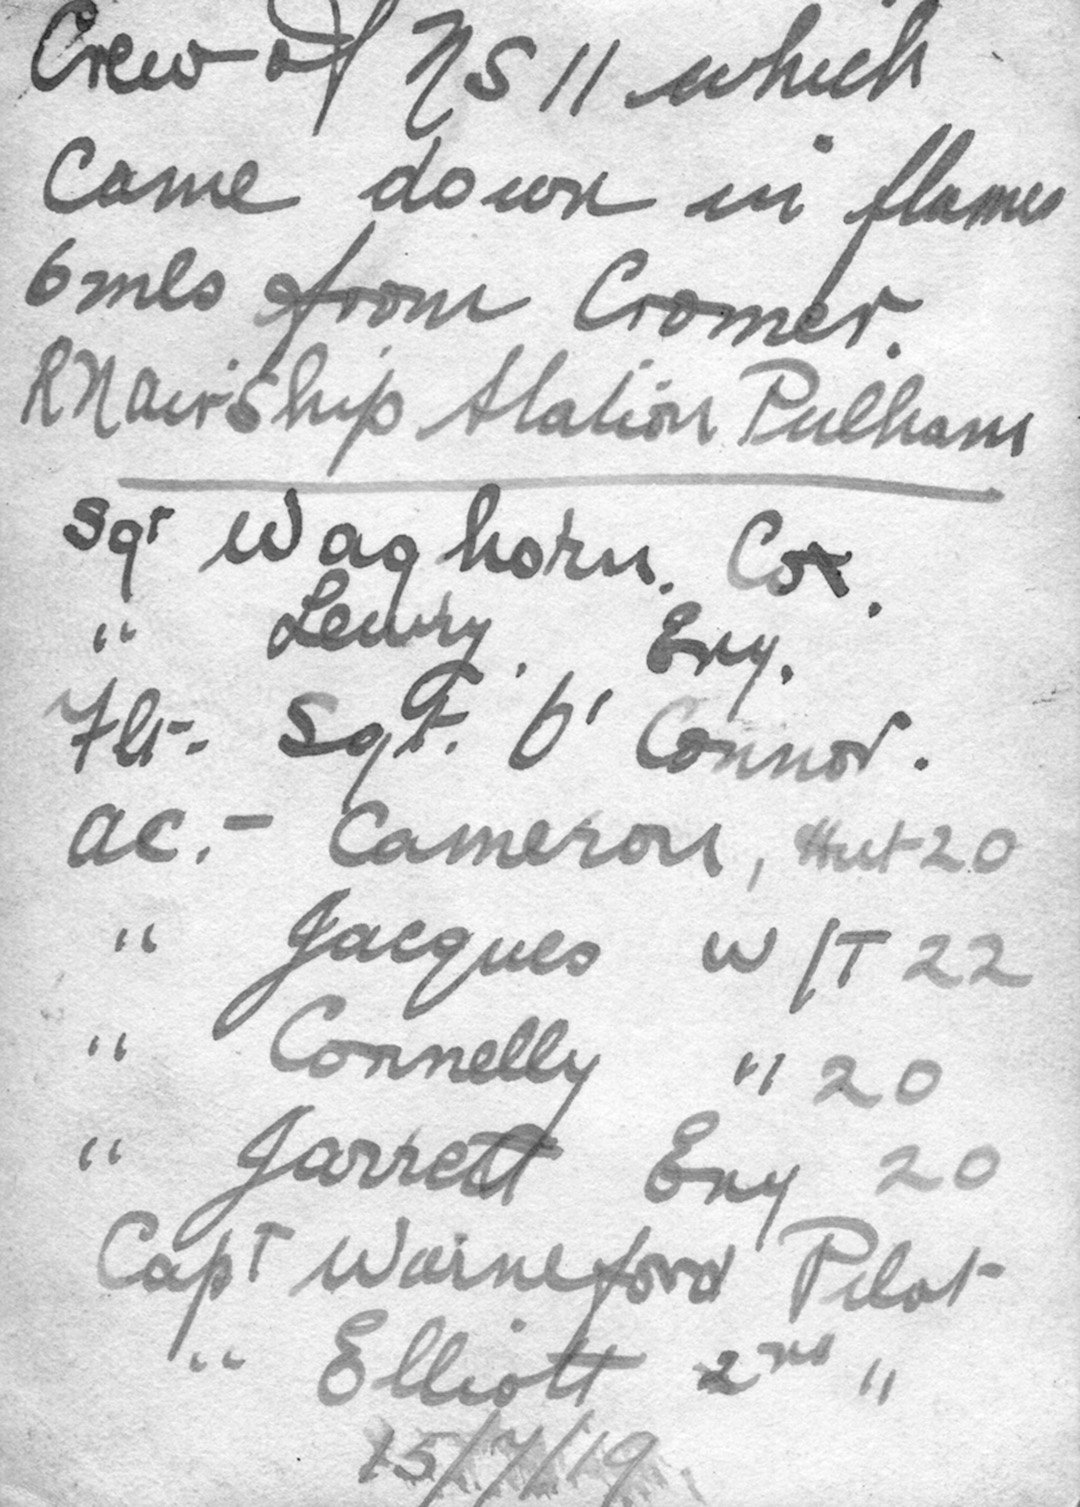 Crew of NS 11 which
Came down in flames
6 mls from Cromer.
RN Airship Station Pulham
Sgt Waghorn. Cox.
" Lewry. Eng.
Flt. Sgt. O'Connor.
AC. - Cameron, Hut 20
" Jacques W/T 22
" Connelly " 20
" Jarrett Eng 20
Capt Warneford Pilot
" Elliott 2nd "
15/7/19